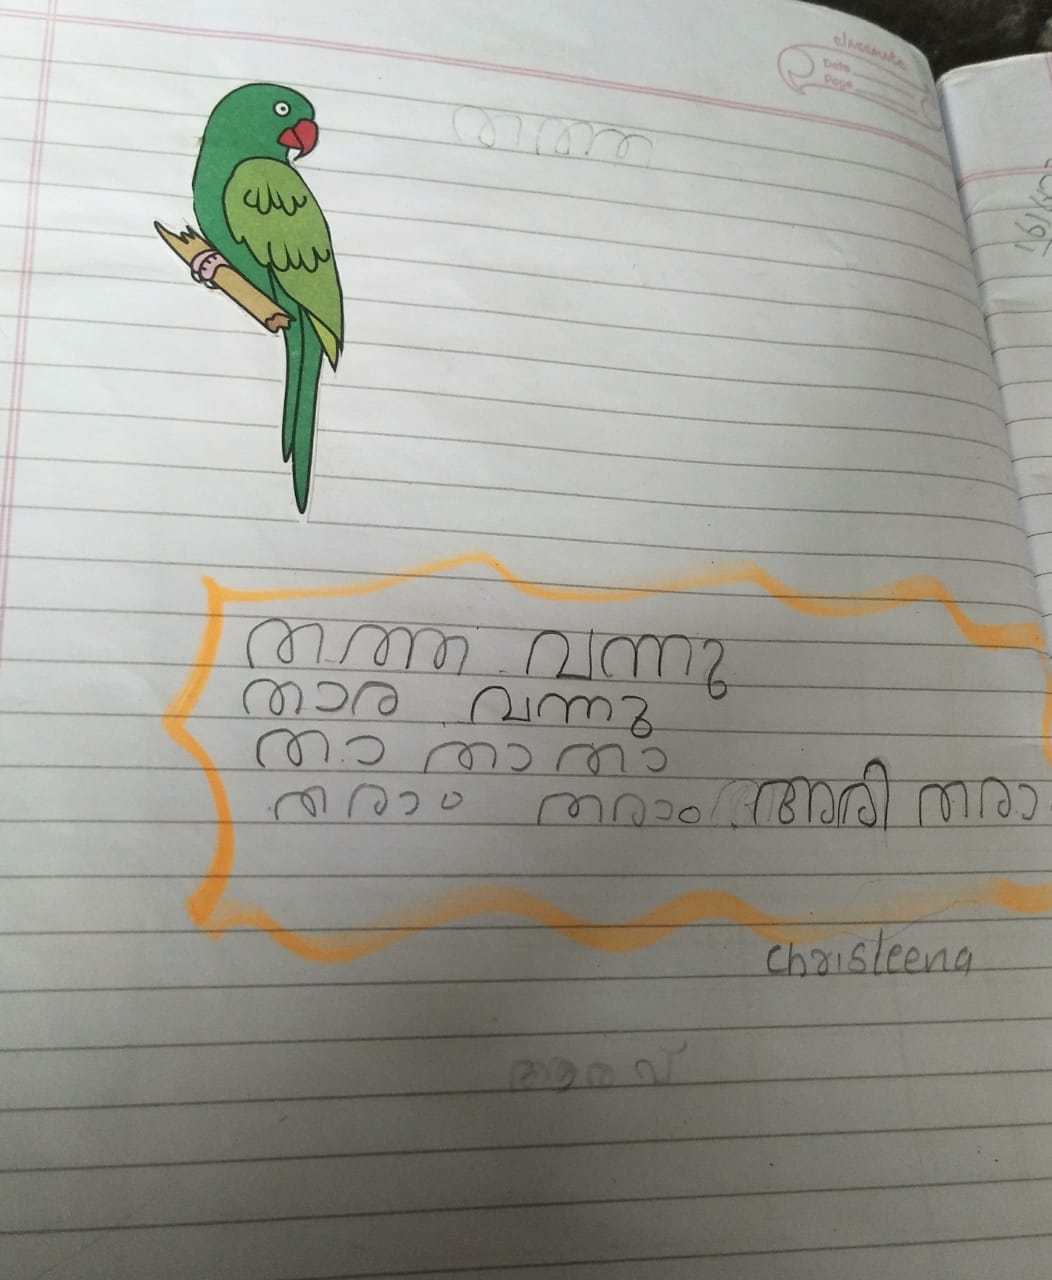 classmate
Date
Page
തത്ത
തത്ത വന്നു
താര വന്നു
താ താ താ
തരാം തരാം അരി തരാ
Christeena